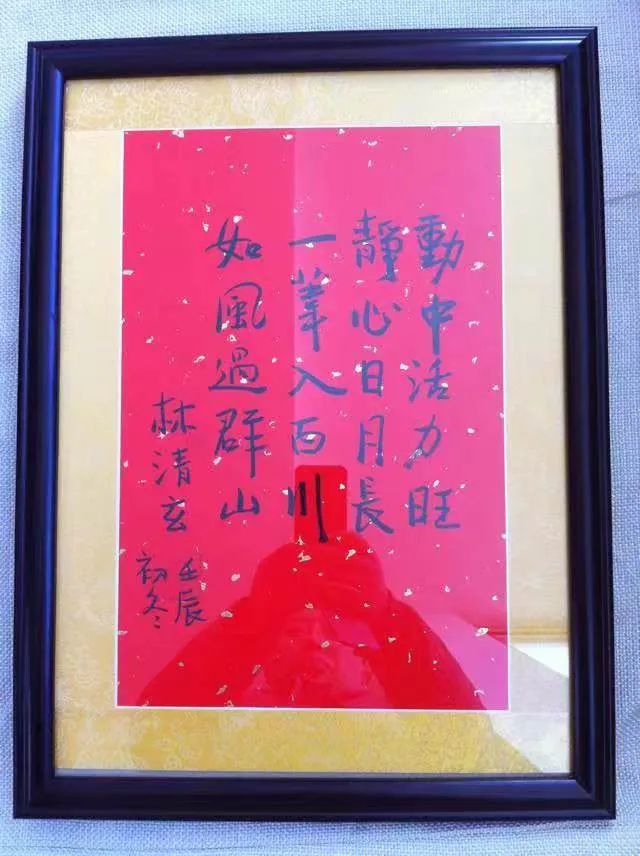 動中活力旺
靜心日月長
一葦入西川
如風過群山
林清玄
壬辰
初冬